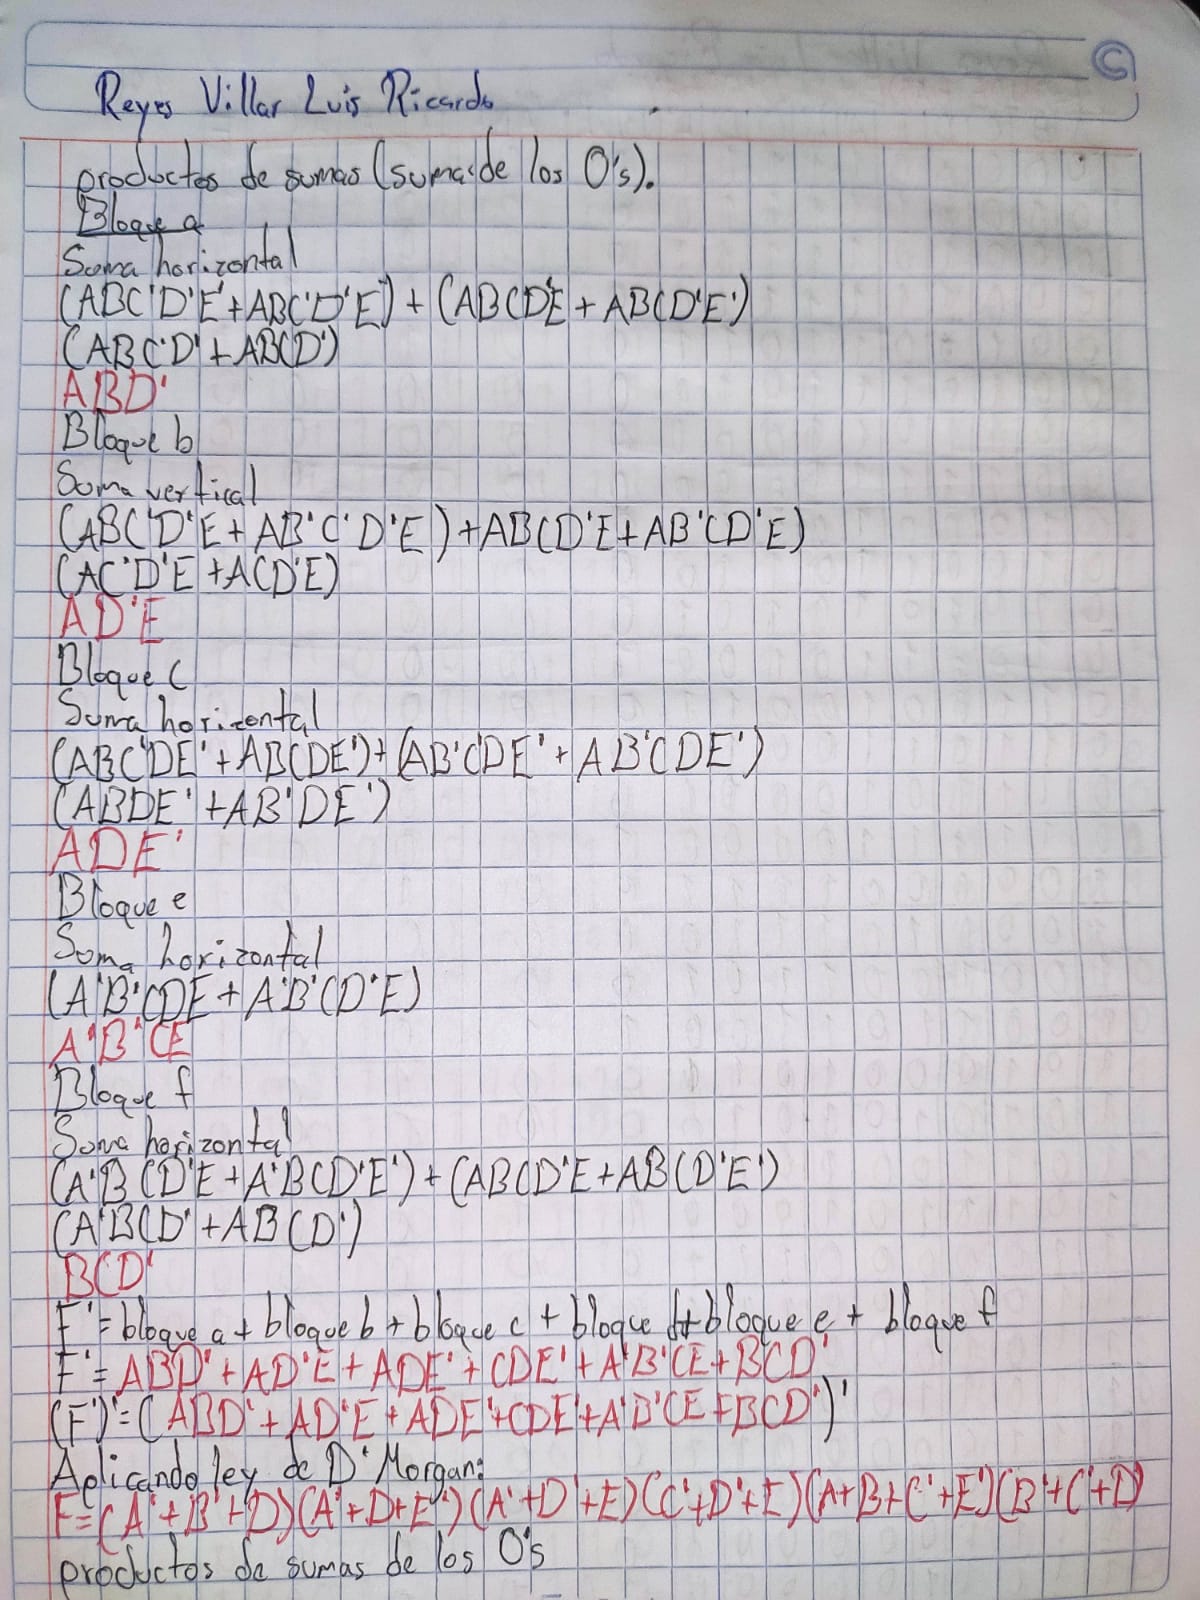 Reyes Villar Luis Ricardo
productos de sumas (suma de los 0's).
Bloque a
Suma horizontal
(ABC'D'E'+ABC'D'E) + (ABCD'E + ABCD'E')
(ABC'D' + ABCD')
ABD'
Bloque b
Suma vertical
(ABC'D'E + AB'C'D'E) + ABCD'E + AB'CD'E)
(AC'D'E + ACD'E)
AD'E
Bloque c
Suma horizontal
(ABC'DE' + ABCDE') + (AB'C'DE' + AB'CDE')
(ABDE' + AB'DE')
ADE'
Bloque e
Suma horizontal
(A'B'CDE + A'B'CD'E)
A'B'CE
Bloque f
Suma horizontal
(A'BCD'E + A'BCD'E') + (ABCD'E + ABCD'E')
(A'BCD' + ABCD')
BCD'
F' = bloque a + bloque b + bloque c + bloque d + bloque e + bloque f
F' = ABD' + AD'E + ADE' + CDE' + A'B'CE + BCD'
(F')' = (ABD' + AD'E + ADE' + CDE' + A'B'CE + BCD')'
Aplicando ley de D'Morgan:
F = (A'+B'+D)(A'+D+E')(A'+D'+E)(C'+D'+E)(A+B+C'+E')(B'+C'+D)
productos de sumas de los 0's